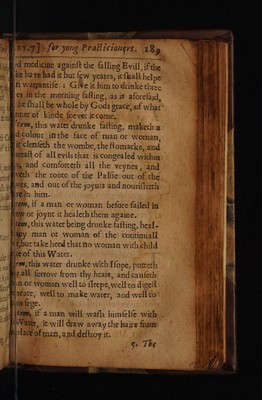 for yong Practicioners. 189
medicine against the falling Evill, if the
ke have had it but few yeares, it shall helpe
warrantise : Give it him to drinke three
es in the morning fasting, as is aforesaid,
he shall be whole by Gods grace, of what
nner of kinde soever it come.
tem, this water drunke fasting, maketh a
d colour in the face of man or woman,
it clenseth the wombe, the stomacke, and
breast of all evils that is congealed within
, and comforteth all the veynes, and
veth the roote of the Palsie out of the
, and out of the joynts and nourisheth
re in him.
tem, if a man or woman before failed in
ew or joynt it healeth them againe.
tem, this water being drunke fasting, heal-
ny man or woman of the continuall
r, but take heed that no woman with child
te of this Water.
tem, this Water drunke with Isope, putteth
all sorrow from thy heart, and causeth
n or woman well to sleepe, well to digest
meate, well to make water, and well to
siege.
tem, if a man will wash himselfe with
Water, it will draw away the haire from
place of man, and destroy it.
5. The